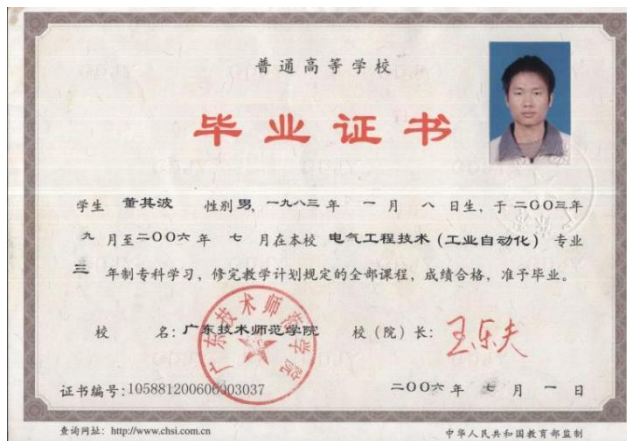 普通高等学校
毕业证书
学生 董其波 性别男，一九八三年 一 月 八 日生，于二〇〇三年
九 月至二〇〇六年 七 月在本校 电气工程技术（工业自动化）专业
三 年制专科学习，修完教学计划规定的全部课程，成绩合格，准予毕业。
校 名：广东技术师范学院 校（院）长：王乐夫
广东技术师范学院
证书编号：105881200606003037
二〇〇六年 七 月 一 日
查询网址：http://www.chsi.com.cn
中华人民共和国教育部监制